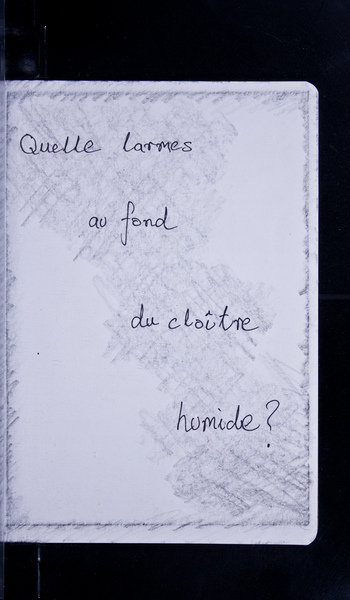 Quelle larmes
au fond
du cloître
humide?